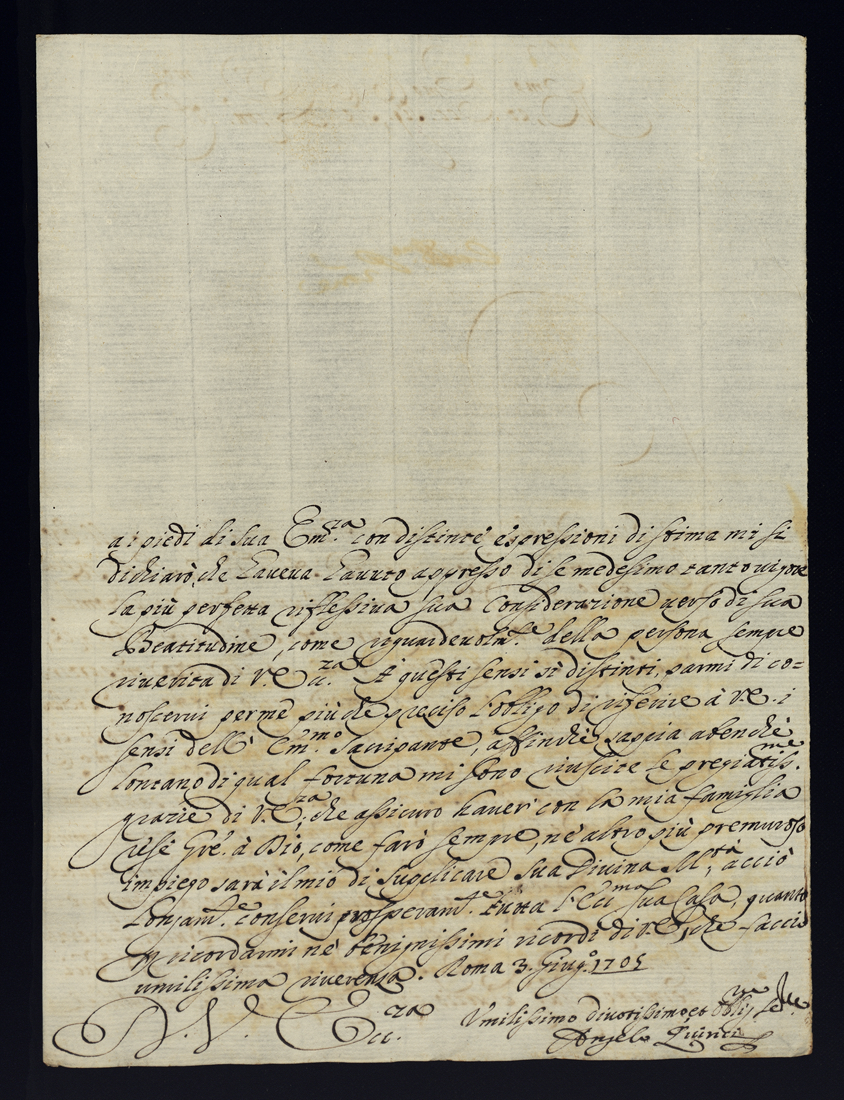 ai piedi di sua Em.za con distinte espressioni di stima mi si
dichiarò, che haveva havuto appresso di se medesimo tanto vigore
la più perfetta riflessiva sua Considerazione verso di sua
Beatitudine, come riguardevolm.te della persona sempre
riverita di V. Ecc.za A questi sensi sì distinti, parmi di co=
noscervi per me più che preciso l'obligo di riferire à V.E. i
sensi dell' Em.mo Sacripante, affinche sappia abenchè
lontano di qual fortuna mi sono riuscite le pregiatiss.me
grazie di V.E.za, che assicuro haver con la mia famiglia
rese Gr.e à Dio, come farò sempre, nè altro più premuroso
impiego sarà il mio di supplicare Sua Divina M.tà, acciò
longam.e conservi prosperam.e tutta l'Ecc.ma sua Casa, quanto
ricordarmi nè benignissimi ricordi di V.E., che faccio
umilissima riverenza. Roma 3. Giug.o 1705
D. V. Ecc.za
Vmilissimo divotissimo et Obli.mo Se.re
Angelo Quirici